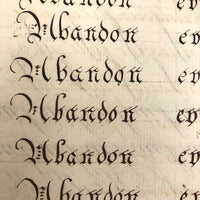 Abandon ev
Abandon ev
Abandon ev
Abandon ev
Abandon ev
Abandon